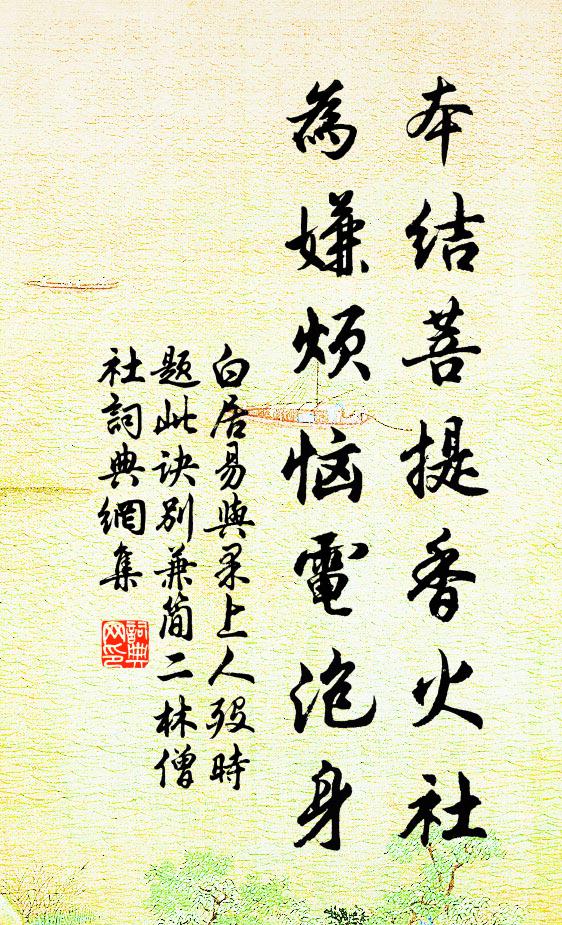 本结菩提香火社
為嫌烦恼電泡身
白居易與果上人殁時
題此诀别兼简二林僧
社詞典網集
詞典网印